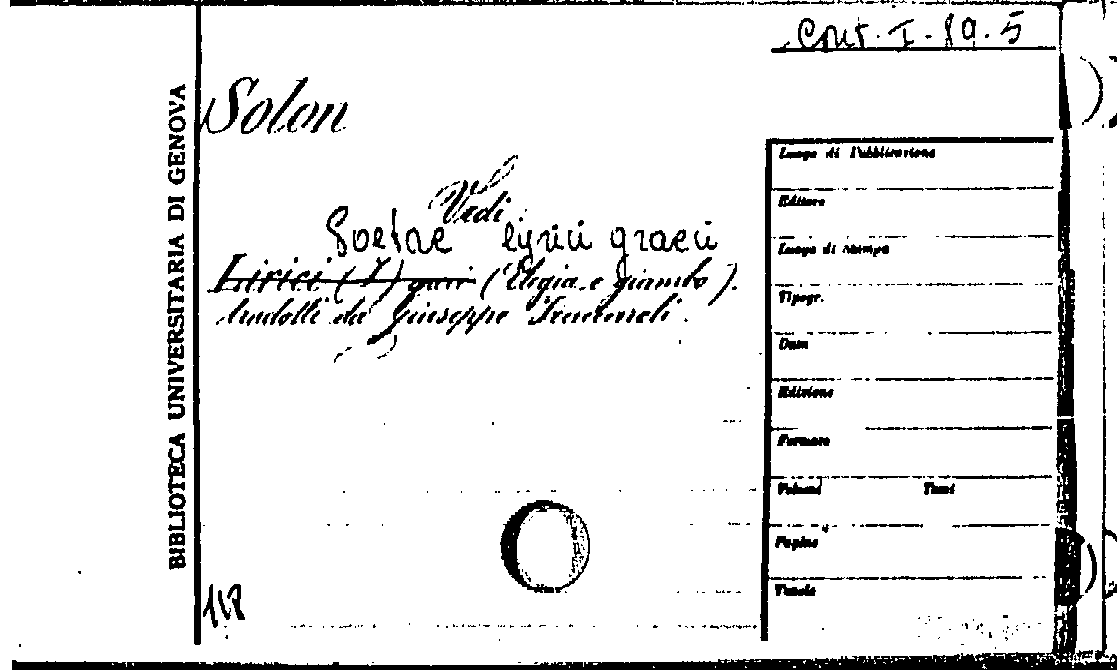 Cont. I. 89. 5
BIBLIOTECA UNIVERSITARIA DI GENOVA
Solon
Vedi
Poetae lyrici graeci
Lirici (I) greci (Elegia e giambo).
tradotti da Giuseppe Fraccaroli.
Luogo di Pubblicazione
Editore
Luogo di stampa
Tipogr.
Data
Edizione
Formato
Volumi Tomi
Pagine
Tavole